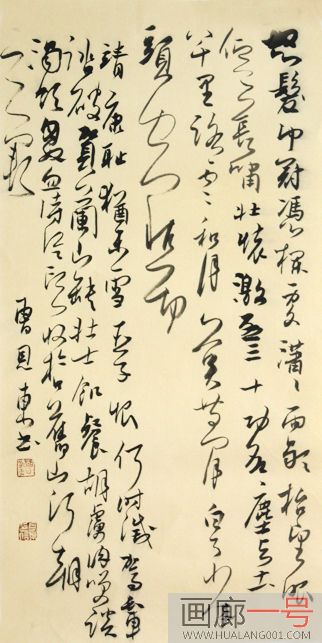 怒髮冲冠馮欄處瀟瀟雨歇抬望眼
仰天長嘯壯懷激烈三十功名塵与土
八千里路雲和月莫等閒白了少年
頭空悲切
靖康耻猶未雪臣子恨何時滅駕長車
踏破賀蘭山缺壯士飢餐胡虜肉笑談
渴飲匈奴血待從頭收拾舊山河朝
天闕
曹恩東书
画廊一号
WWW.HUALANG001.COM